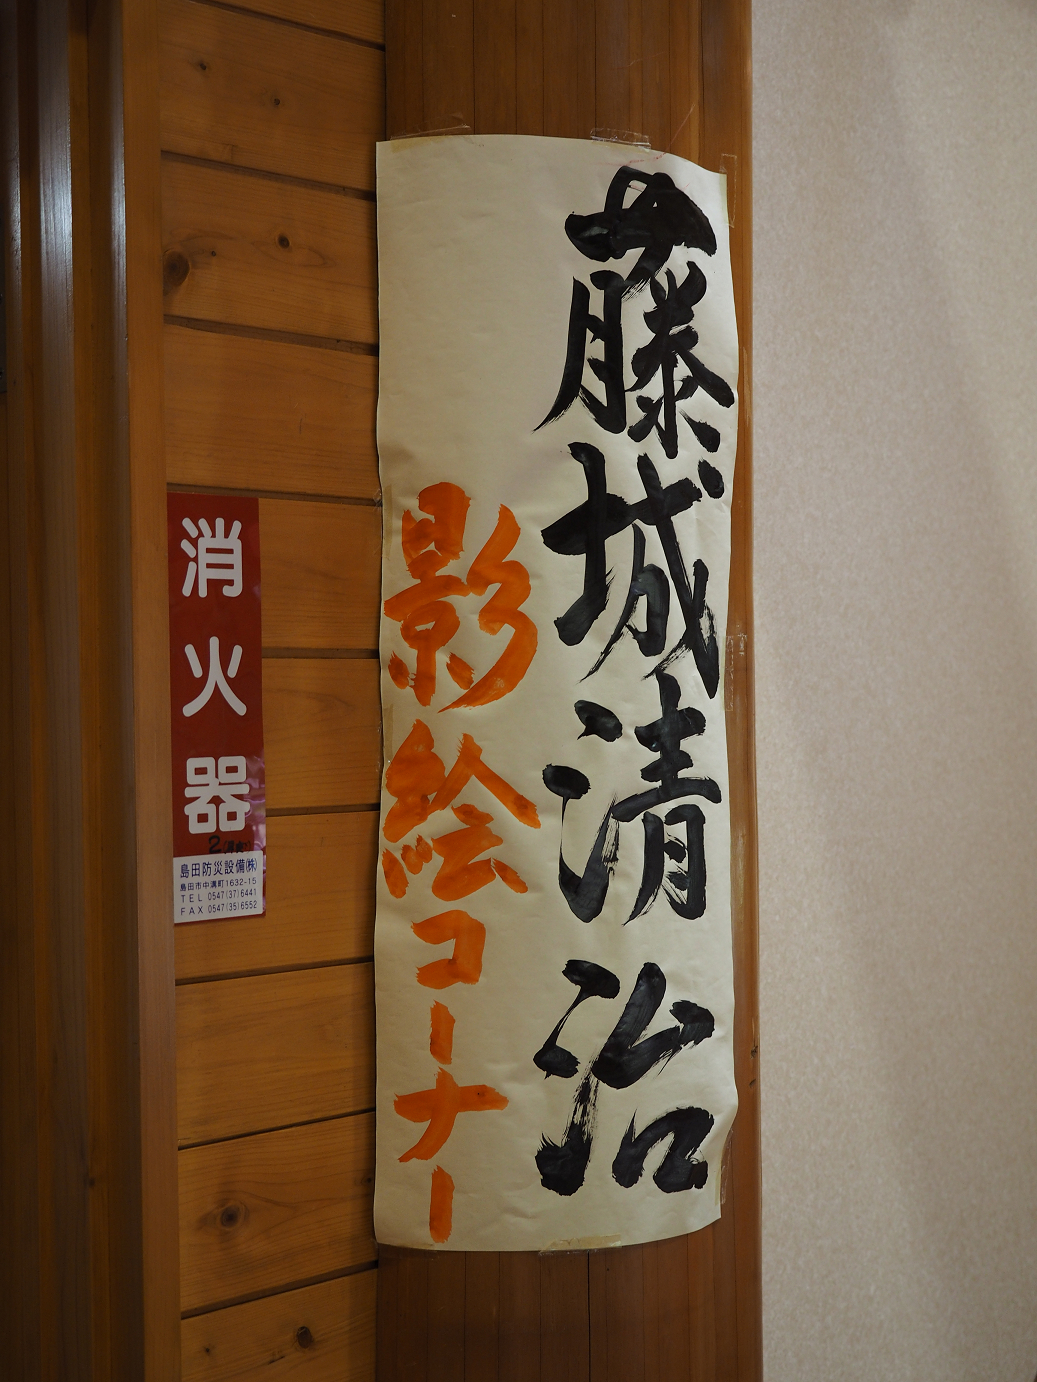 藤城清治
影絵コーナー
消火器
島田防災設備(株)
島田市中溝町1632-15
TEL 0547(37)6441
FAX 0547(35)6552